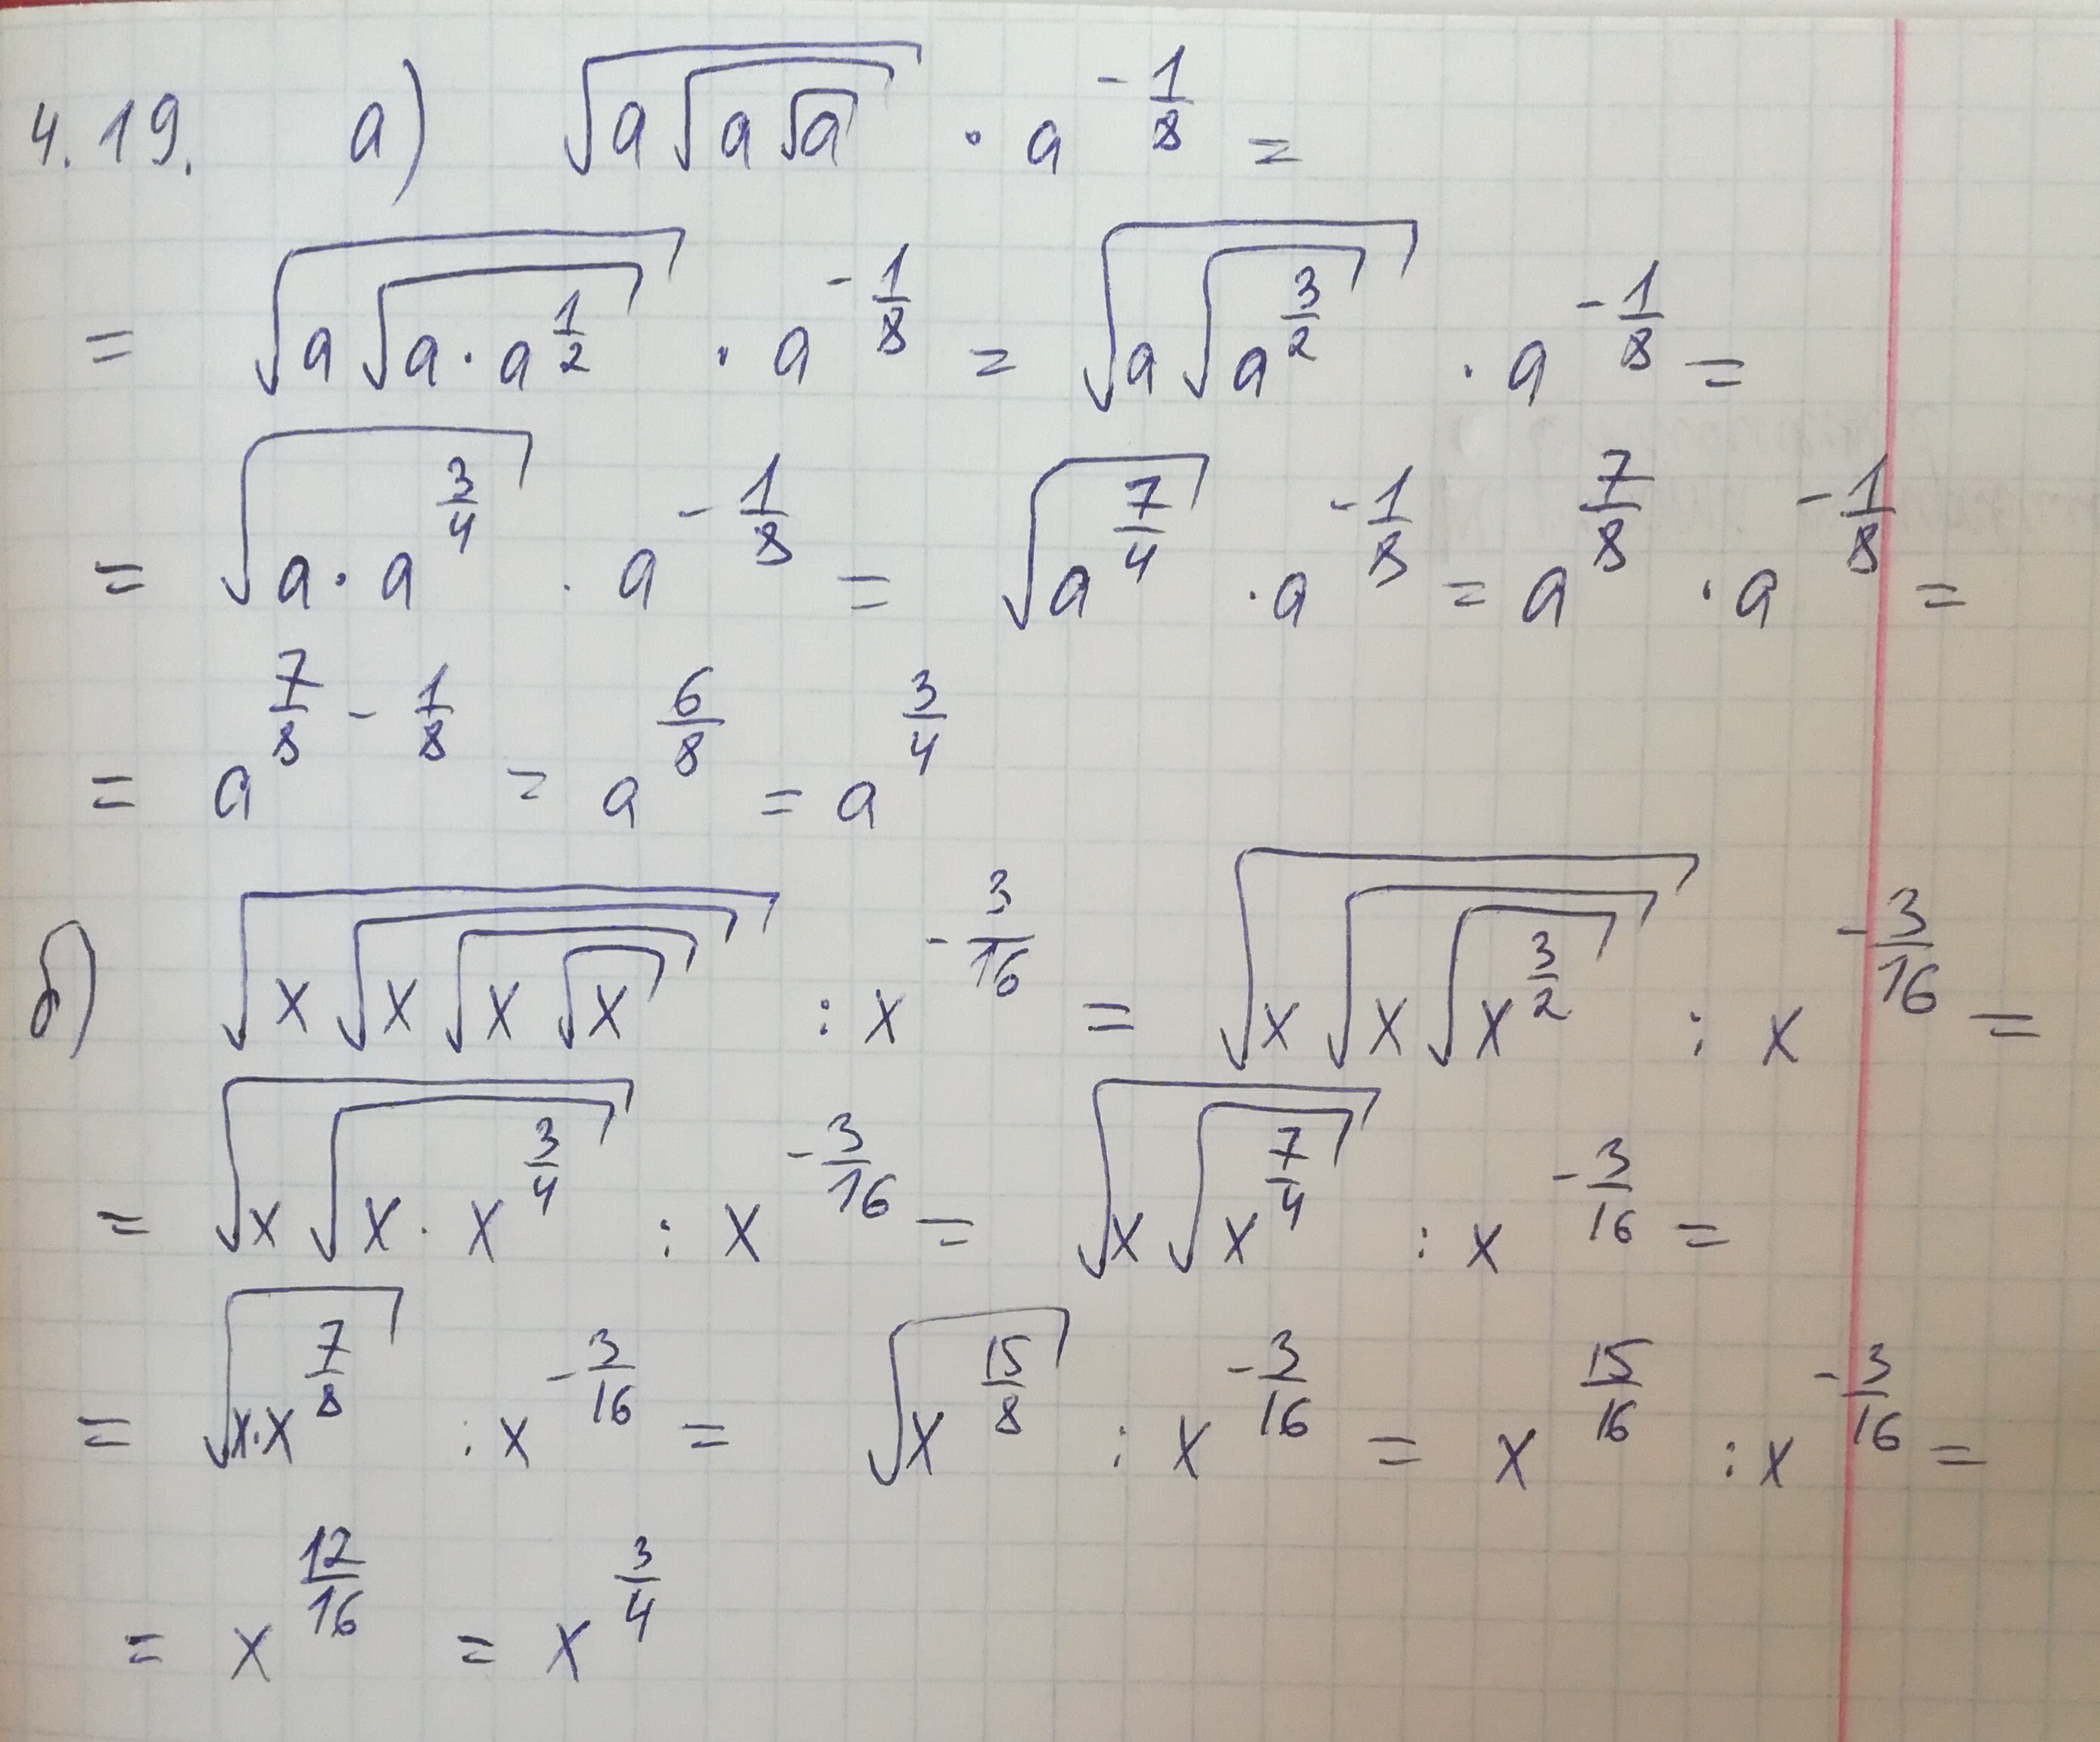 4.19. а) √(a√(a√a)) · a^(-1/8) =
= √(a√(a · a^(1/2))) · a^(-1/8) = √(a√(a^(3/2))) · a^(-1/8) =
= √(a · a^(3/4)) · a^(-1/8) = √(a^(7/4)) · a^(-1/8) = a^(7/8) · a^(-1/8) =
= a^(7/8 - 1/8) = a^(6/8) = a^(3/4)
б) √(x√(x√(x√x))) : x^(-3/16) = √(x√(x√(x^(3/2)))) : x^(-3/16) =
= √(x√(x · x^(3/4))) : x^(-3/16) = √(x√(x^(7/4))) : x^(-3/16) =
= √(x·x^(7/8)) : x^(-3/16) = √(x^(15/8)) : x^(-3/16) = x^(15/16) : x^(-3/16) =
= x^(12/16) = x^(3/4)